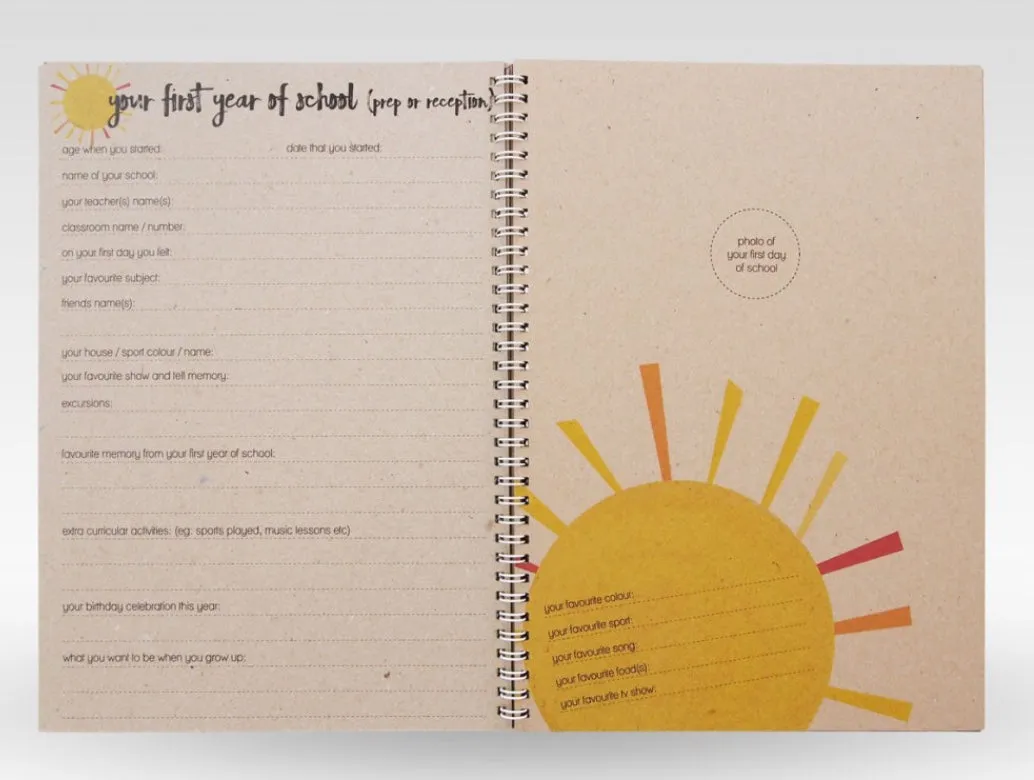 your first year of school (prep or reception)
age when you started: date that you started:
name of your school:
your teacher(s) name(s):
classroom name / number:
on your first day you felt:
your favourite subject:
friends name(s):
your house / sport colour / name:
your favourite show and tell memory:
excursions:
favourite memory from your first year of school:
extra curricular activities: (eg: sports played, music lessons etc)
your birthday celebration this year:
what you want to be when you grow up:
photo of
your first day
of school
your favourite colour:
your favourite sport:
your favourite song:
your favourite food(s):
your favourite tv show: